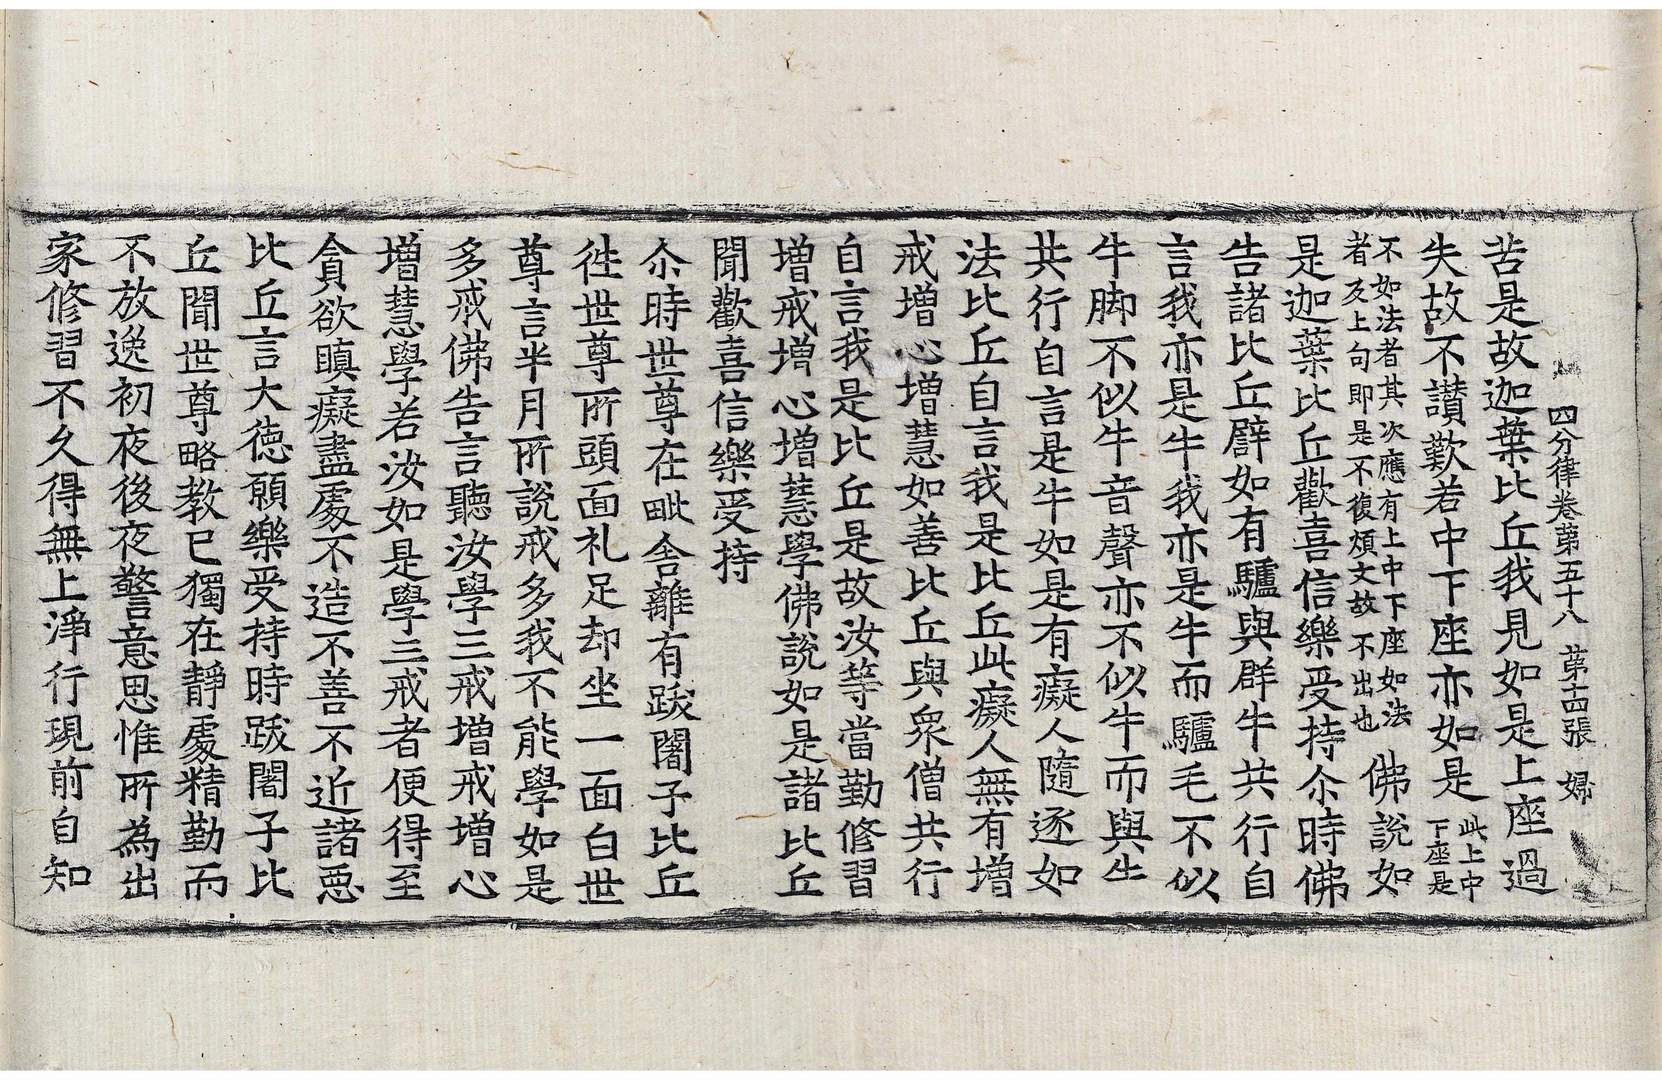 四分律卷第五十八 第十四張 婦
苦是故迦葉比丘我見如是上座過
失故不讃歎若中下座亦如是
此上中
下座是
不如法者其次應有上中下座如法
者及上句即是不復煩文故不出也
佛說如
是迦葉比丘歡喜信樂受持尒時佛
告諸比丘譬如有驢與群牛共行自
言我亦是牛我亦是牛而驢毛不似
牛脚不似牛音聲亦不似牛而與牛
共行自言是牛如是有癡人隨逐如
法比丘自言我是比丘此癡人無有增
戒增心增慧如善比丘與衆僧共行
自言我是比丘是故汝等當勤修習
增戒增心增慧學佛說如是諸比丘
聞歡喜信樂受持
尒時世尊在毗舍離有跋闍子比丘
徃世尊所頭面礼足却坐一面白世
尊言半月所說戒多我不能學如是
多戒佛告言聽汝學三戒增戒增心
增慧學若汝如是學三戒者便得至
貪欲瞋癡盡處不造不善不近諸惡
比丘言大德願樂受持時跋闍子比
丘聞世尊略教已獨在靜處精勤而
不放逸初夜後夜警意思惟所為出
家修習不久得無上淨行現前自知